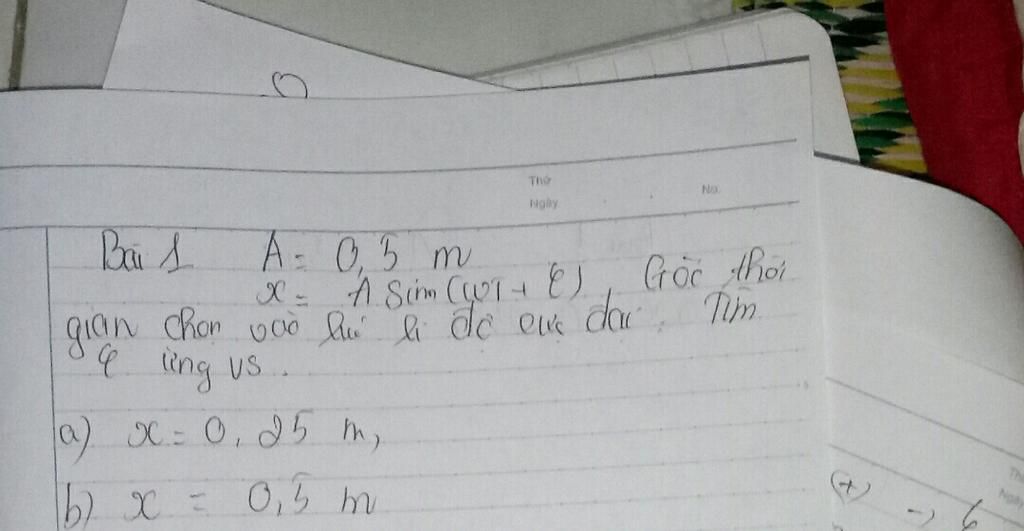 Thứ
Ngày
No.
Bài 1 A = 0,5 m
x = A sin (ωT + φ), Gốc thời
gian chọn vào lúc li độ cực đại. Tìm
φ ứng vs.
a) x = 0,25 m,
b) x = 0,5 m
(+)
→ 6
Th
Ngày